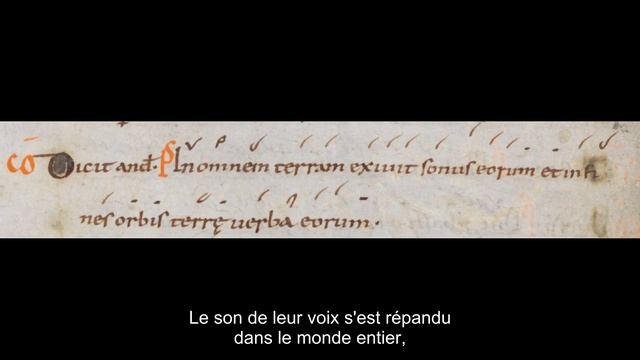 CŌ Dicit and̄. Ps In omnem terram exivit sonus eorum et in fi
nes orbis terrę verba eorum.
Le son de leur voix s'est répandu
dans le monde entier,